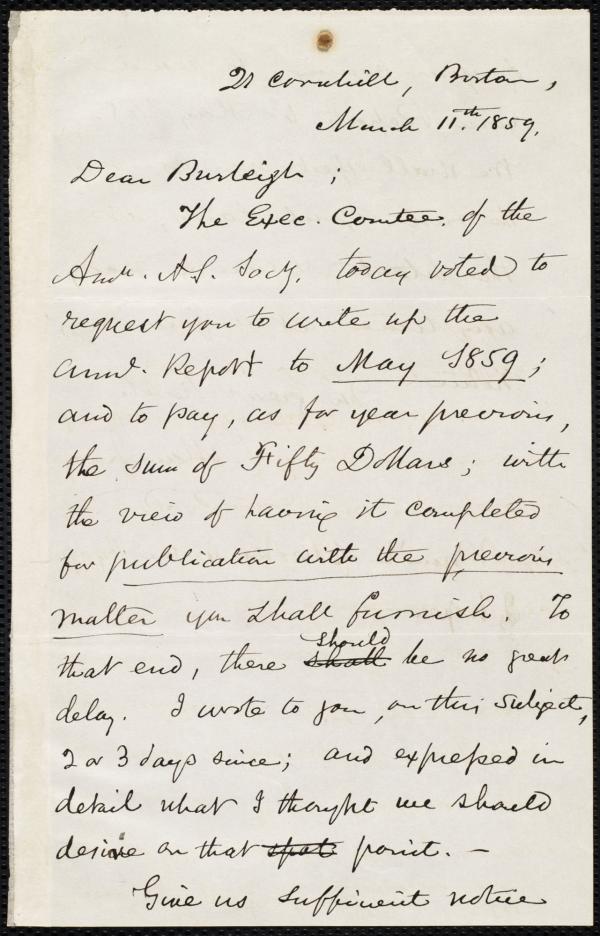 21 Cornhill, Boston,
March 11.th 1859.
Dear Burleigh;
The Exec. Comtee. of the
Amn. A.S. Socy. today voted to
request you to write up the
annl. Report to May 1859;
and to pay, as for year previous,
the sum of Fifty Dollars; with
the view of having it completed
for publication with the previous
matter you shall furnish. To
that end, there shall should be no great
delay. I wrote to you, on this subject,
2 or 3 days since; and expressed in
detail what I thought we should
desire on that spot point. —
Give us sufficient notice